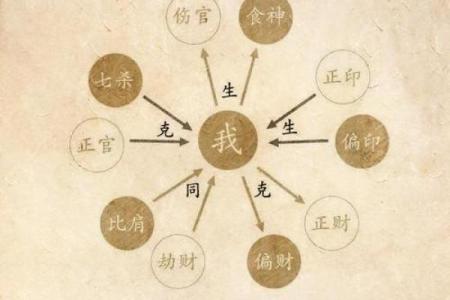 伤官
食神
七杀
正印
生
克
生
正官
我
偏印
同
克
比肩
正财
劫财
偏财